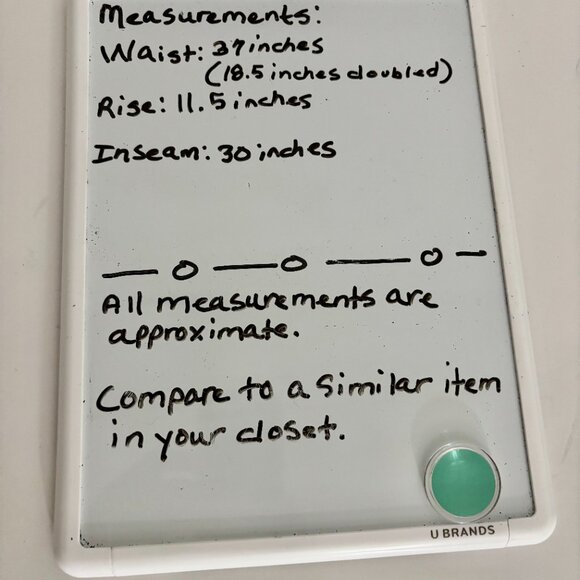 Measurements:
Waist: 37 inches
(18.5 inches doubled)
Rise: 11.5 inches
Inseam: 30 inches
All measurements are
approximate.
Compare to a similar item
in your closet.
U BRANDS